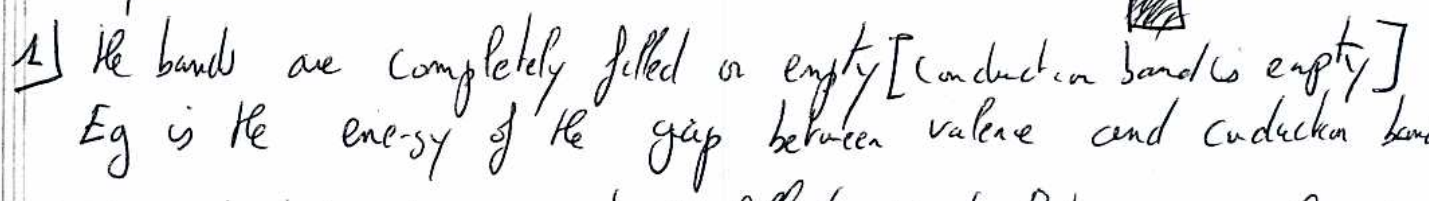 1] The bands are completely filled or empty [conduction band is empty]
Eg is the energy of the gap between valence and conduction